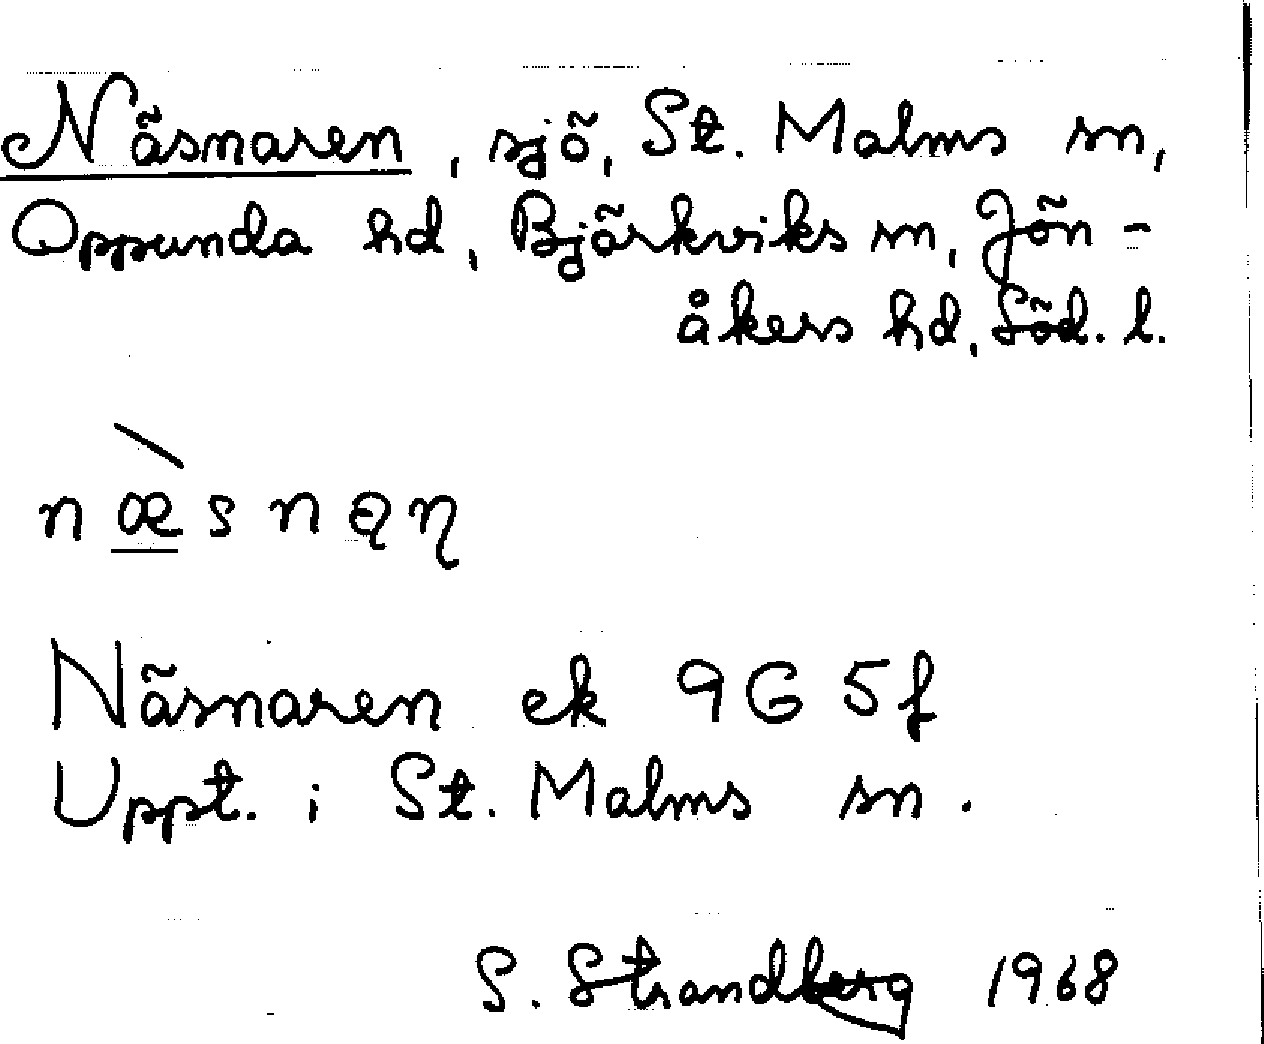 Näsnaren, sjö, St. Malms sn,
Oppunda hd, Björkviks sn, Jön-
åkers hd, Söd. l.
næ̀snąɳ
Näsnaren ek 9G 5f
Uppt. i St. Malms sn.
S. Strandberg 1968